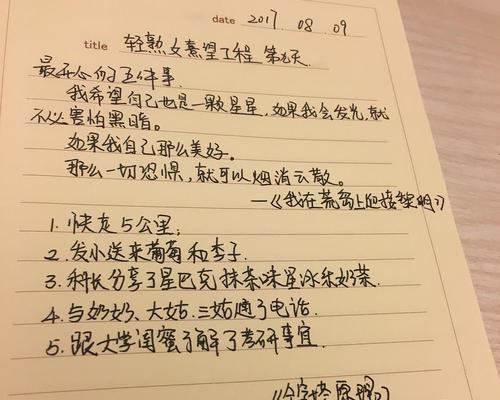 date 2017. 08. 09
title 轻熟女素望工程 第九天.
最开心的五件事.
我希望自己也是一颗星星,如果我会发光,就
不必害怕黑暗。
如果我自己那么美好。
那么一切恐惧,就可以烟消云散。
—《我在荒岛上迎接黎明》
1. 快走5公里;
2. 发小送来葡萄和李子.
3. 科长分享了星巴克抹茶味星冰乐奶茶.
4. 与奶奶、大姑、三姑通了电话.
5. 跟大学闺蜜了解了考研事宜.
《金字塔原理》